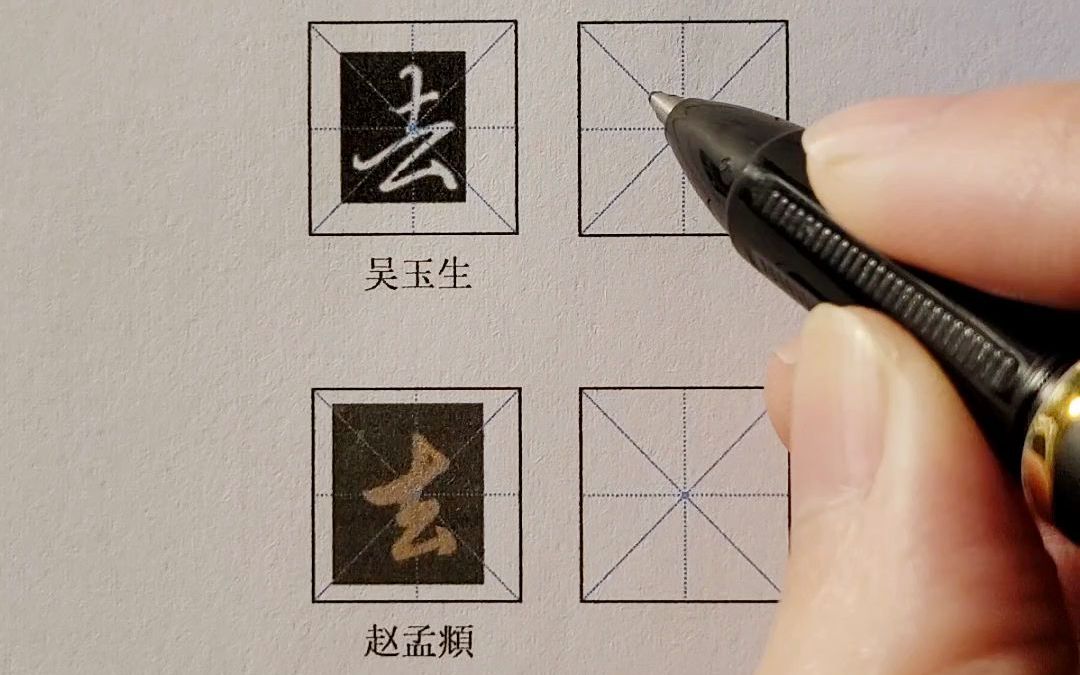 去
吴玉生
去
赵孟頫